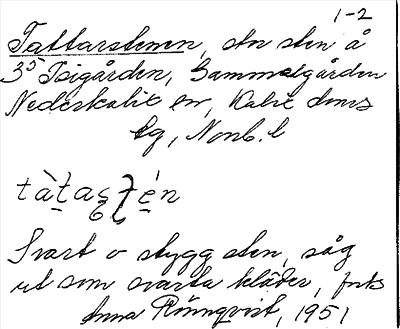 1-2
Tattarstenen, stor sten å
3⁵ Isigården, Gammelgården
Nederkalix sn, Kalix doms
lg, Nonb. l
tàta en
Svart o stygg sten, såg
ut som svarta kläder, folks
Anna Rönnqvist, 1951